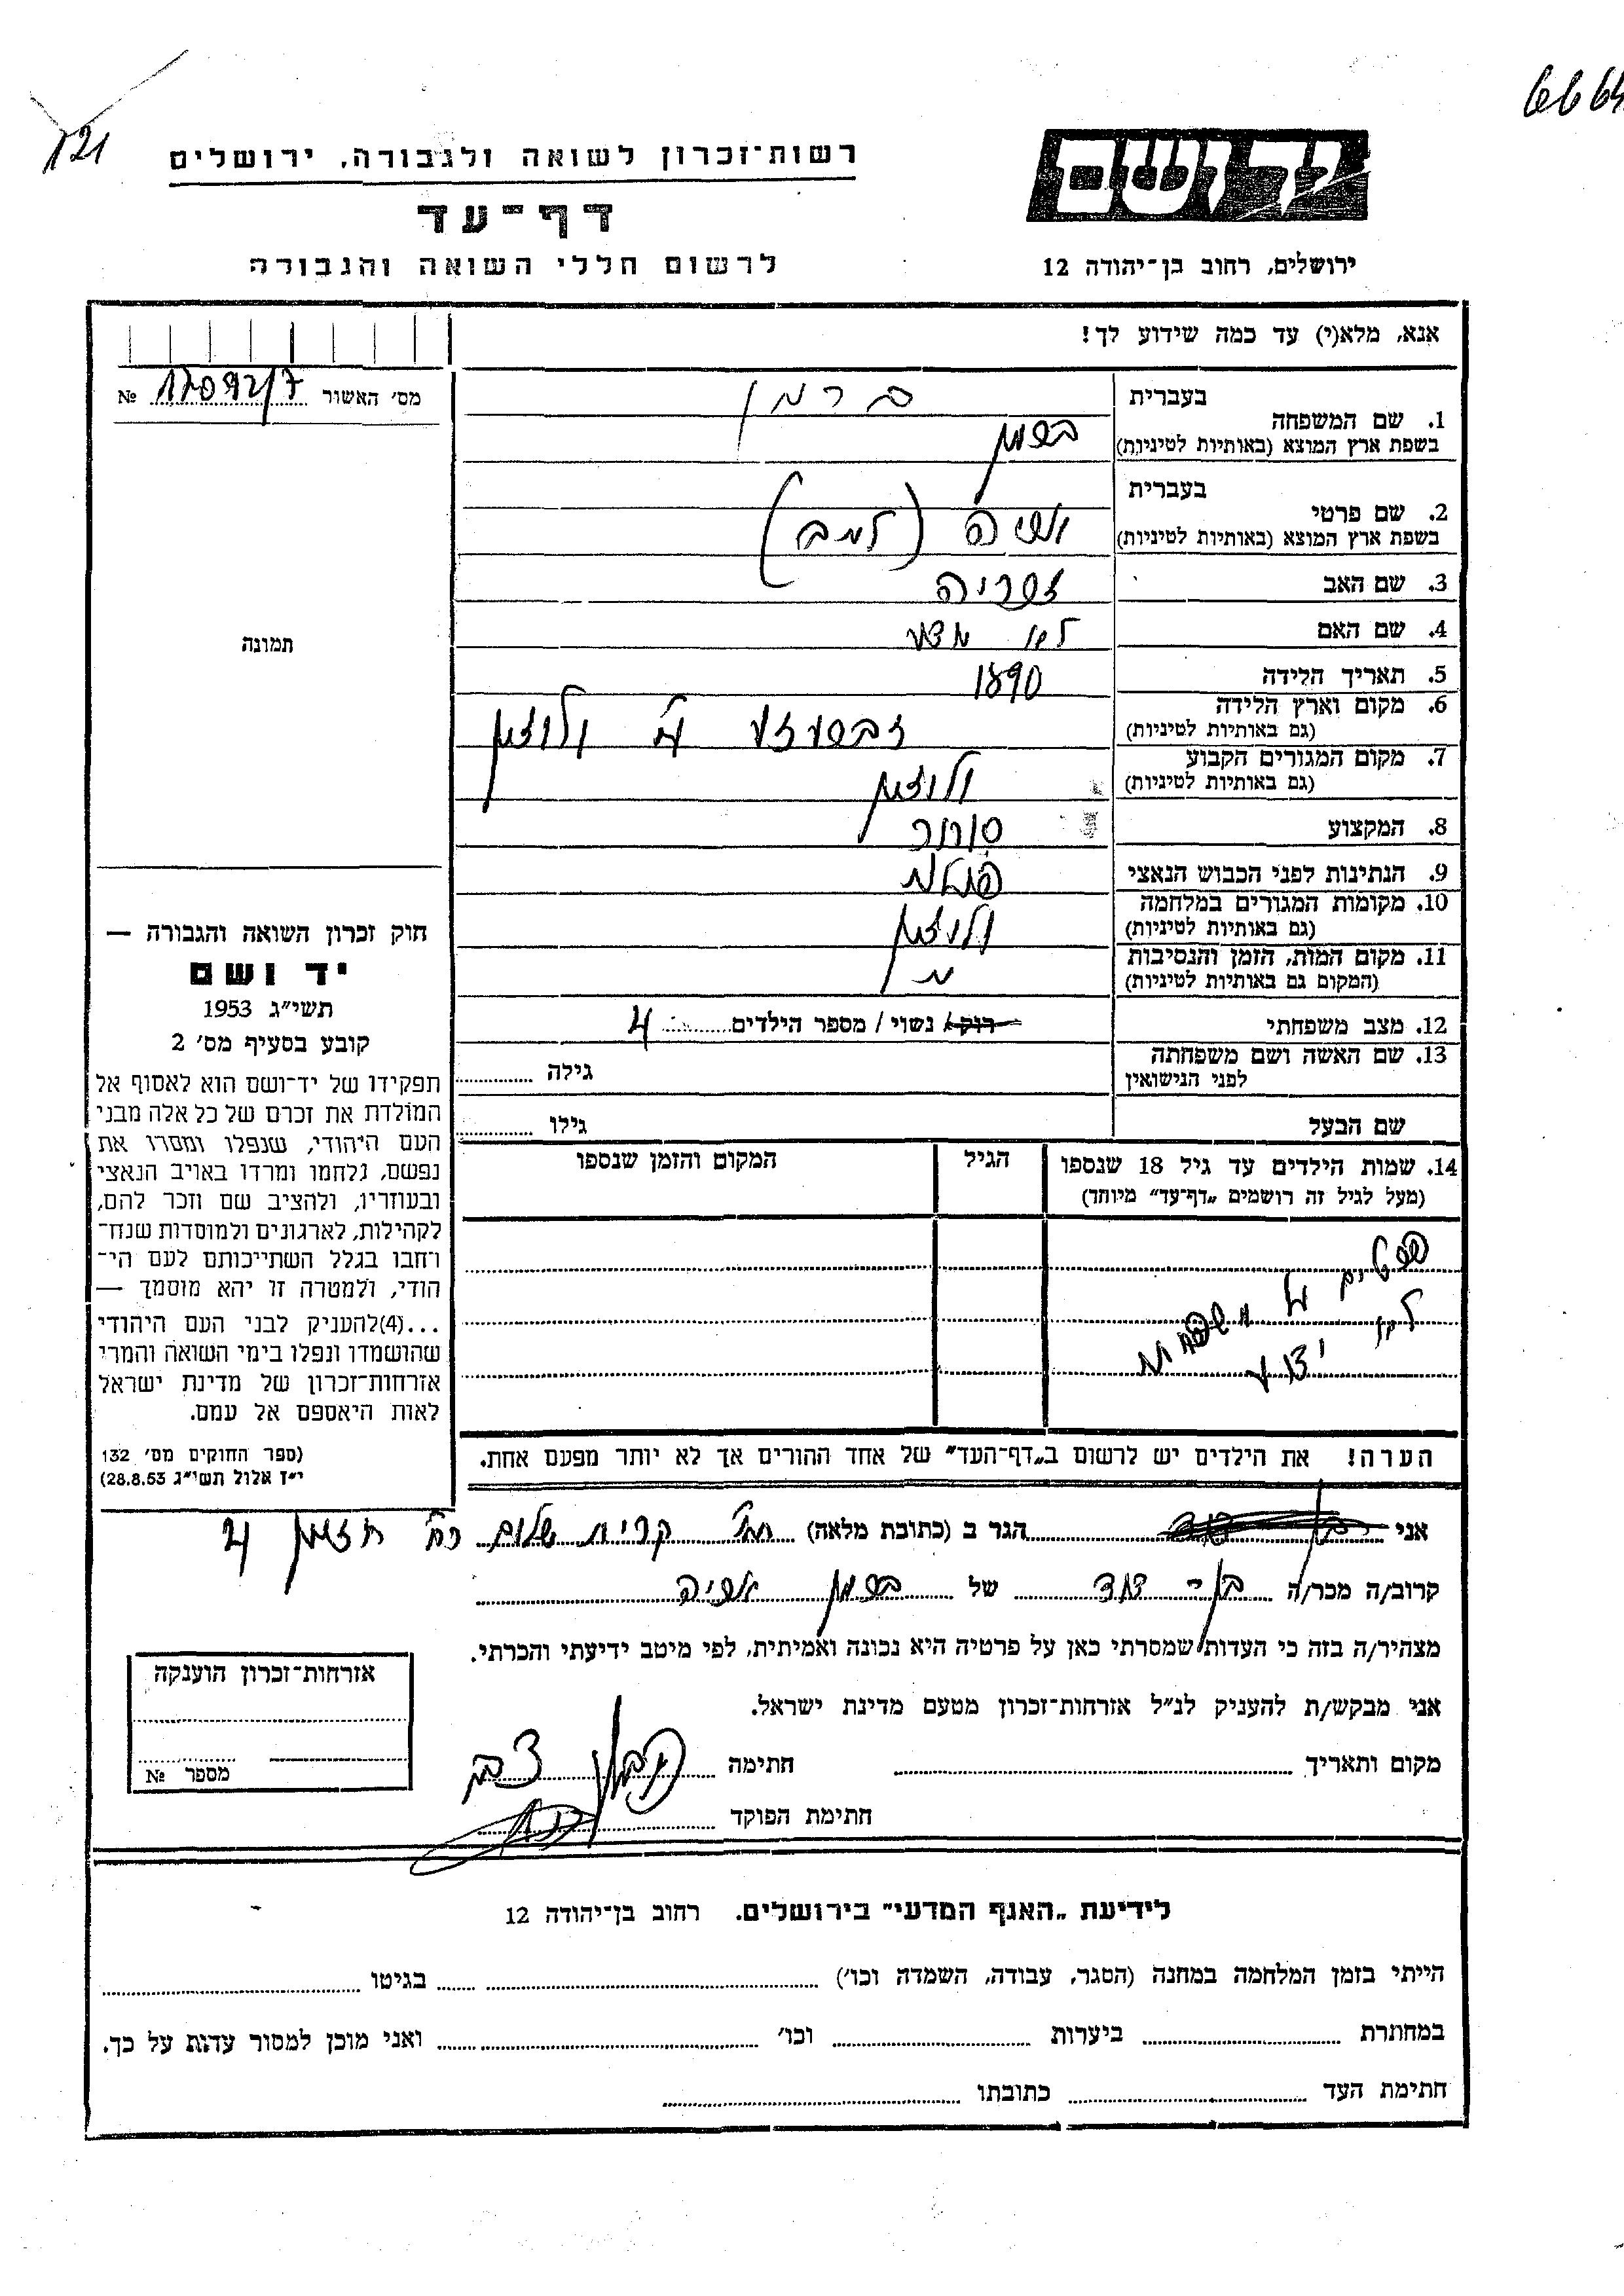 6664
121
יד ושם
רשות־זכרון לשואה ולגבורה, ירושלים
דף־עד
לרשום חללי השואה והגבורה
ירושלים, רחוב בן־יהודה 12
אנא, מלא(י) עד כמה שידוע לך!
מס׳ האשור № 17092/7
תמונה
1. שם המשפחה
בעברית
ברמן
בשפת ארץ המוצא (באותיות לטיניות)
ברמן
2. שם פרטי
בעברית
בשפת ארץ המוצא (באותיות לטיניות)
3. שם האב
זכריה
4. שם האם
לא
5. תאריך הלידה 1890
6. מקום וארץ הלידה
(גם באותיות לטיניות)
7. מקום המגורים הקבוע
(גם באותיות לטיניות)
8. המקצוע סוחר
9. הנתינות לפני הכבוש הנאצי
10. מקומות המגורים במלחמה
(גם באותיות לטיניות)
11. מקום המות, הזמן והנסיבות
(המקום גם באותיות לטיניות)
12. מצב משפחתי רוק/ נשוי / מספר הילדים 4
13. שם האשה ושם משפחתה
לפני הנישואין
גילה
שם הבעל גילו
14. שמות הילדים עד גיל 18 שנספו
(מעל לגיל זה רושמים „דף־עד״ מיוחד)
הגיל
המקום והזמן שנספו
פרטים על משפחות
לא ידוע
הערה! את הילדים יש לרשום ב„דף־העד״ של אחד ההורים אך לא יותר מפעם אחת.
חוק זכרון השואה והגבורה —
יד ושם
תשי״ג 1953
קובע בסעיף מס׳ 2
תפקידו של יד־ושם הוא לאסוף אל
המולדת את זכרם של כל אלה מבני
העם היהודי, שנפלו ומסרו את
נפשם, נלחמו ומרדו באויב הנאצי
ובעוזריו, ולהציב שם וזכר להם,
לקהילות, לארגונים ולמוסדות שנח־
רחבו בגלל השתייכותם לעם הי־
הודי, ולמטרה זו יהא מוסמך —
...(4)להעניק לבני העם היהודי
שהושמדו ונפלו בימי השואה והמרי
אזרחות־זכרון של מדינת ישראל
לאות היאספם אל עמם.
(ספר החוקים מס׳ 132
י״ז אלול תשי״ג 28.8.53)
אני הגר ב (כתובת מלאה) קרית שלום 4
קרוב/ה מכר/ה בן דוד של ברמן
מצהיר/ה בזה כי העדות שמסרתי כאן על פרטיה היא נכונה ואמיתית, לפי מיטב ידיעתי והכרתי.
אני מבקש/ת להעניק לנ״ל אזרחות־זכרון מטעם מדינת ישראל.
מקום ותאריך חתימה
חתימת הפוקד
אזרחות־זכרון הוענקה
מספר №
לידיעת „האגף המדעי״ בירושלים. רחוב בן־יהודה 12
הייתי בזמן המלחמה במחנה (הסגר, עבודה, השמדה וכו׳) בגיטו
במחתרת ביערות וכו׳ ואני מוכן למסור עדות על כך.
חתימת העד כתובתו